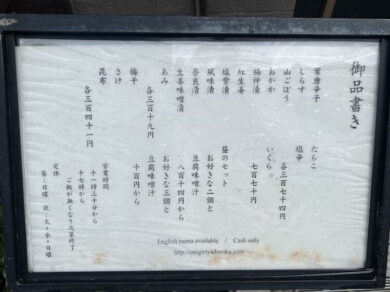 御品書き
葉唐辛子
しらす
山ごぼう
おかか
福神漬
紅生姜
塩麹漬
風味漬
奈良漬
生姜味噌漬
あみ
各三百十九円
梅干
さけ
昆布
各三百四十一円
たらこ
塩辛
各三百七十四円
いくら
七百七十円
昼のセット
お好きな二個と
豆腐味噌汁
八百十四円から
お好きな三個と
豆腐味噌汁
千百円から
営業時間
十一時三十分から
十七時から
ご飯が無くなり次第終了
定休
昼：日曜
夜：火・水・日曜
English menu available / Cash only
http://onigiriyadoroku.com/